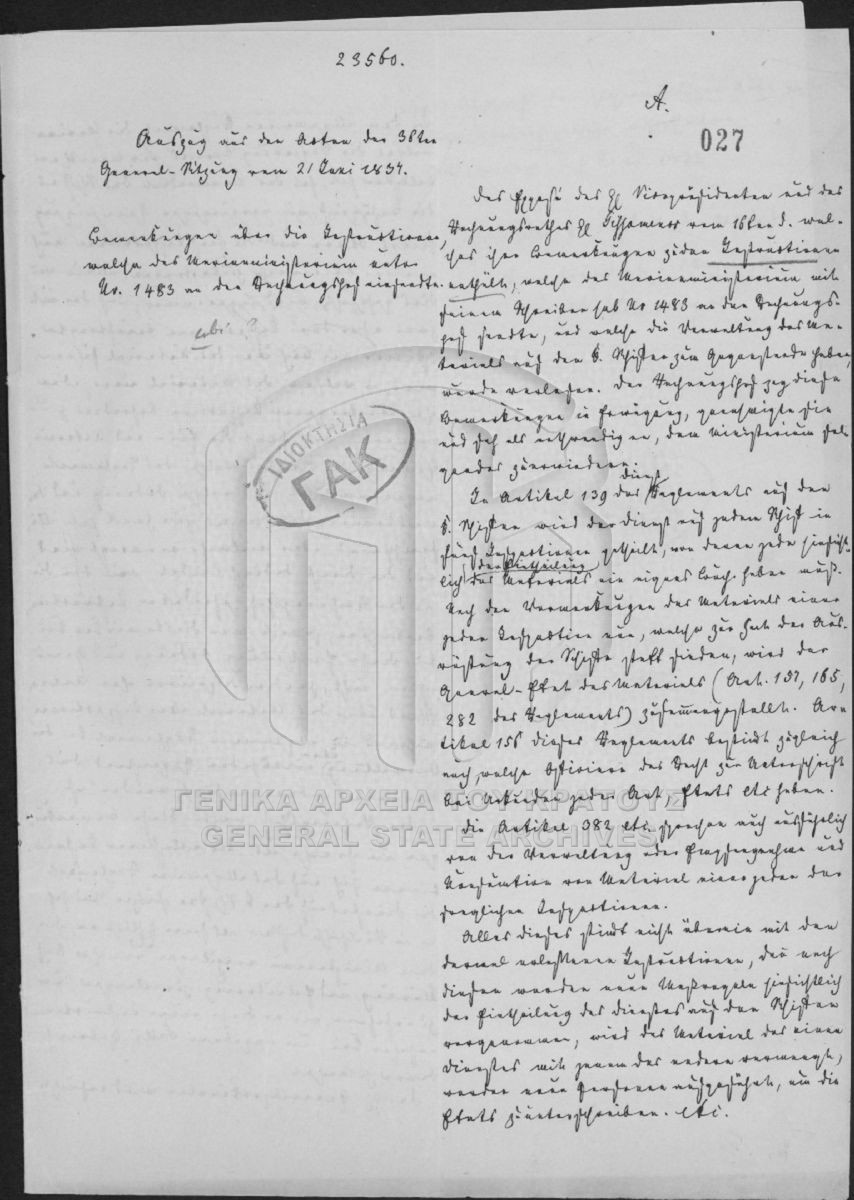 23560.
A.
027
Auszug aus den Akten der 36ten
General-Sitzung vom 21 Juni 1834.
Bemerkungen über die Instructionen,
welche das Marineministerium unter
Nr. 1483 an den Rechnungshof einsandte.
ubi?
Das Exposé des H Vicepräsidenten und des
Rechnungsrathes H vom 16ten d. wel-
ches ihre Bemerkungen zu den Instructionen
enthält, welche das Marineministerium mit
seinem Schreiben sub Nr 1483 an den Rechnungs-
hof sandte, und welche die Verwaltung des Ma-
terials auf den k. Schiffen zum Gegenstande haben,
wurde verlesen. Der Rechnungshof zog diese
Bemerkungen in Erwägung, genehmigte sie
und sah als nothwendig an, dem Ministerium fol-
gendes zu erwiedern:
In Artikel 139 des Dienst Reglements auf den
k. Schiffen wird der Dienst auf jedem Schiff in
fünf Inspectionen getheilt, von denen jede hinsicht-
lich der Eintheilung des Materials ein eignes Buch haben muß.
Nach den Vormerkungen des Materials einer
jeden Inspection nun, welche zur Zeit der Aus-
rüstung der Schiffe statt finden, wird der
General-Etat des Materials (Art. 137, 165,
282 des Reglements) zusammengestellt. Ar-
tikel 156 dieses Reglements bestimmt zugleich
auch, welche Officiere das Recht zur Unterschrift
bei Urkunden jeder Art, Etats etc haben.
Die Artikel 382 etc. sprechen auch ausführlich
von der Verwaltung oder Empfangnahme und
Consumtion von Material einer jeden der
fraglichen Inspectionen.
Alles dieses stimmt nicht überein mit den
dermal erlassenen Instructionen, denn nach
diesen werden neue Maßregeln hinsichtlich
der Eintheilung des Dienstes auf den Schiffen
vorgenommen, wird das Material des einen
Dienstes mit jenem des andern vermengt,
werden neue Personen aufgeführt, um die
Etats zu unterschreiben. etc.
ΙΔΙΟΚΤΗΣΙΑ
ΓΑΚ
ΓΕΝΙΚΑ ΑΡΧΕΙΑ ΤΟΥ ΚΡΑΤΟΥΣ
GENERAL STATE ARCHIVES